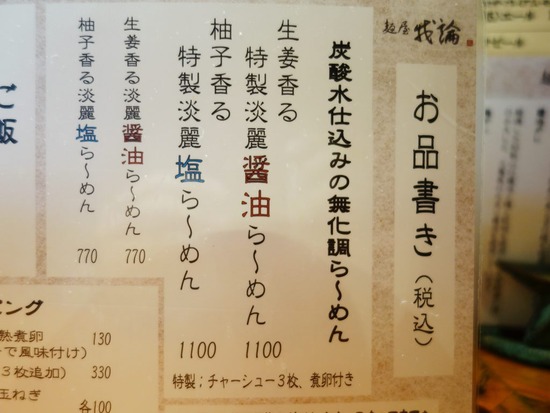 麺屋 我論
お品書き(税込)
炭酸水仕込みの無化調ら〜めん
生姜香る
特製淡麗醤油ら〜めん 1100
柚子香る
特製淡麗塩ら〜めん 1100
特製;チャーシュー3枚、煮卵付き
生姜香る淡麗醤油ら〜めん 770
柚子香る淡麗塩ら〜めん 770
ご飯
ピング
熟煮卵 130
で風味付け)
3枚追加) 330
玉ねぎ 各100